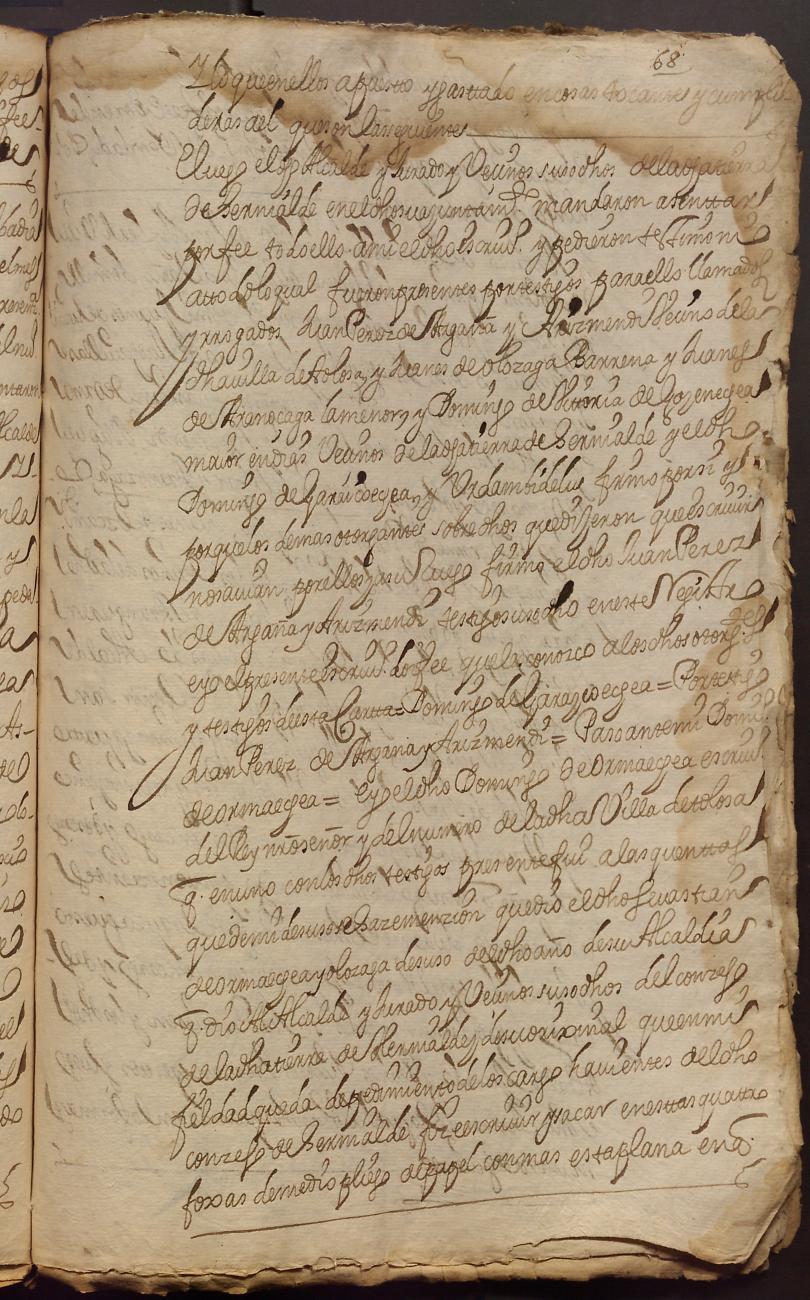 68
Y lo que en ellos a puesto y gasttado en cosas tocantes y cumpli
deras del que son las siguientes
E luego el dho Alcalde y Jurado y Vecinos susodhos de la dha tierra
de Hernialde en el dho su ajuntamto mandaron asenttar
por fee todo ello a mi el dho escriuo y pidieron testimonio
a todo lo qual fueron presentes por testigos para ello llamados
y rrogados Juan Perez de Argaña y Arizmendi Vecino de la
dha uilla de tolosa, y Juanes de olozaga Barrena y Juanes
de Aranocaga la menor, y Domingo de Vittoria de Goyenegea
maior en dias Vecinos de la dha tierra de Hernialde y el dho
Domingo de Garaicoegea, y Vrdambidelus firmo por si y
por que los demas otorgantes sobredhos que dijeron que escriuir
no sauian por ellos y a su Ruego firmo el dho Juan Perez
de Argaña y Arizmendi testigo susodho en este Registro
e yo el presente escriuo doi fee que le conozco a los dhos otorgtes
y testigos de esta Cartta = Domingo de Garaycoegea = Por testigo
Juan Perez de Argaña y Arizmendi = Passo ante mi Domingo
de ormaegea = E yo el dho Domingo de Ormaegea escriuo
del Rey nro señor y del numero de la dha Villa de tolosa
q. en uno con los dhos testigos presente fui a las quenttas
que de mi de suso se haze menzion que dio el dho Seuastian
de ormaegea y olozaga de suso del dho año de su Alcaldia
q. dio Al Alcalde y Jurado y Vecinos susodhos del conzejo
de la dha tierra de Hernialde y de su orixinal que en mi
fieldad queda de pedimiento de los cargo hauientes del dho
conzejo de Hernialde fize escriuir y sacar en esttas quattro
foxas de medio pliego de papel con mas esta plana en q.